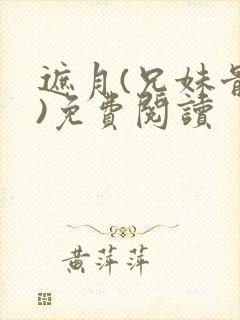 遮月(兄妹骨
)免費閱讀
黃萍萍